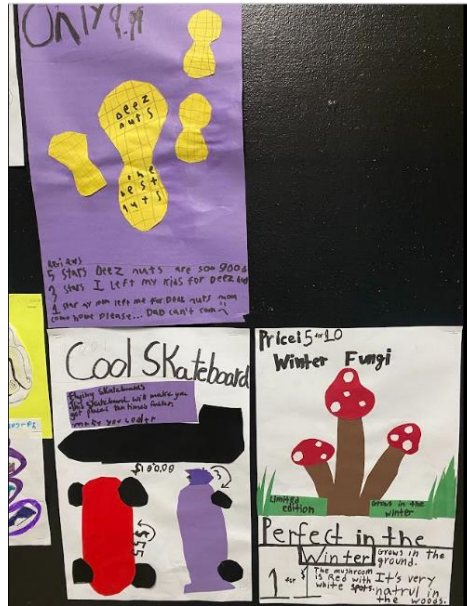 Only 9.99
Deez
nuts
the
best
nuts
5 stars Deez nuts are soo good
I left my kids for Deez
1 star my mom left me for Deez nuts mom
come home please... DaD can't
Cool Skateboard
Flying skateboards
this skateboard will make you
get places ten times faster.
make you cooler
$100.00
$55
Price: 5 for 10
Winter Fungi
Limited
edition
Grows in the
winter
Perfect in the
Winter
Grows in the
ground.
1 for $1
The mushroom
is Red with
white spots.
It's very
natrul in
the woods.